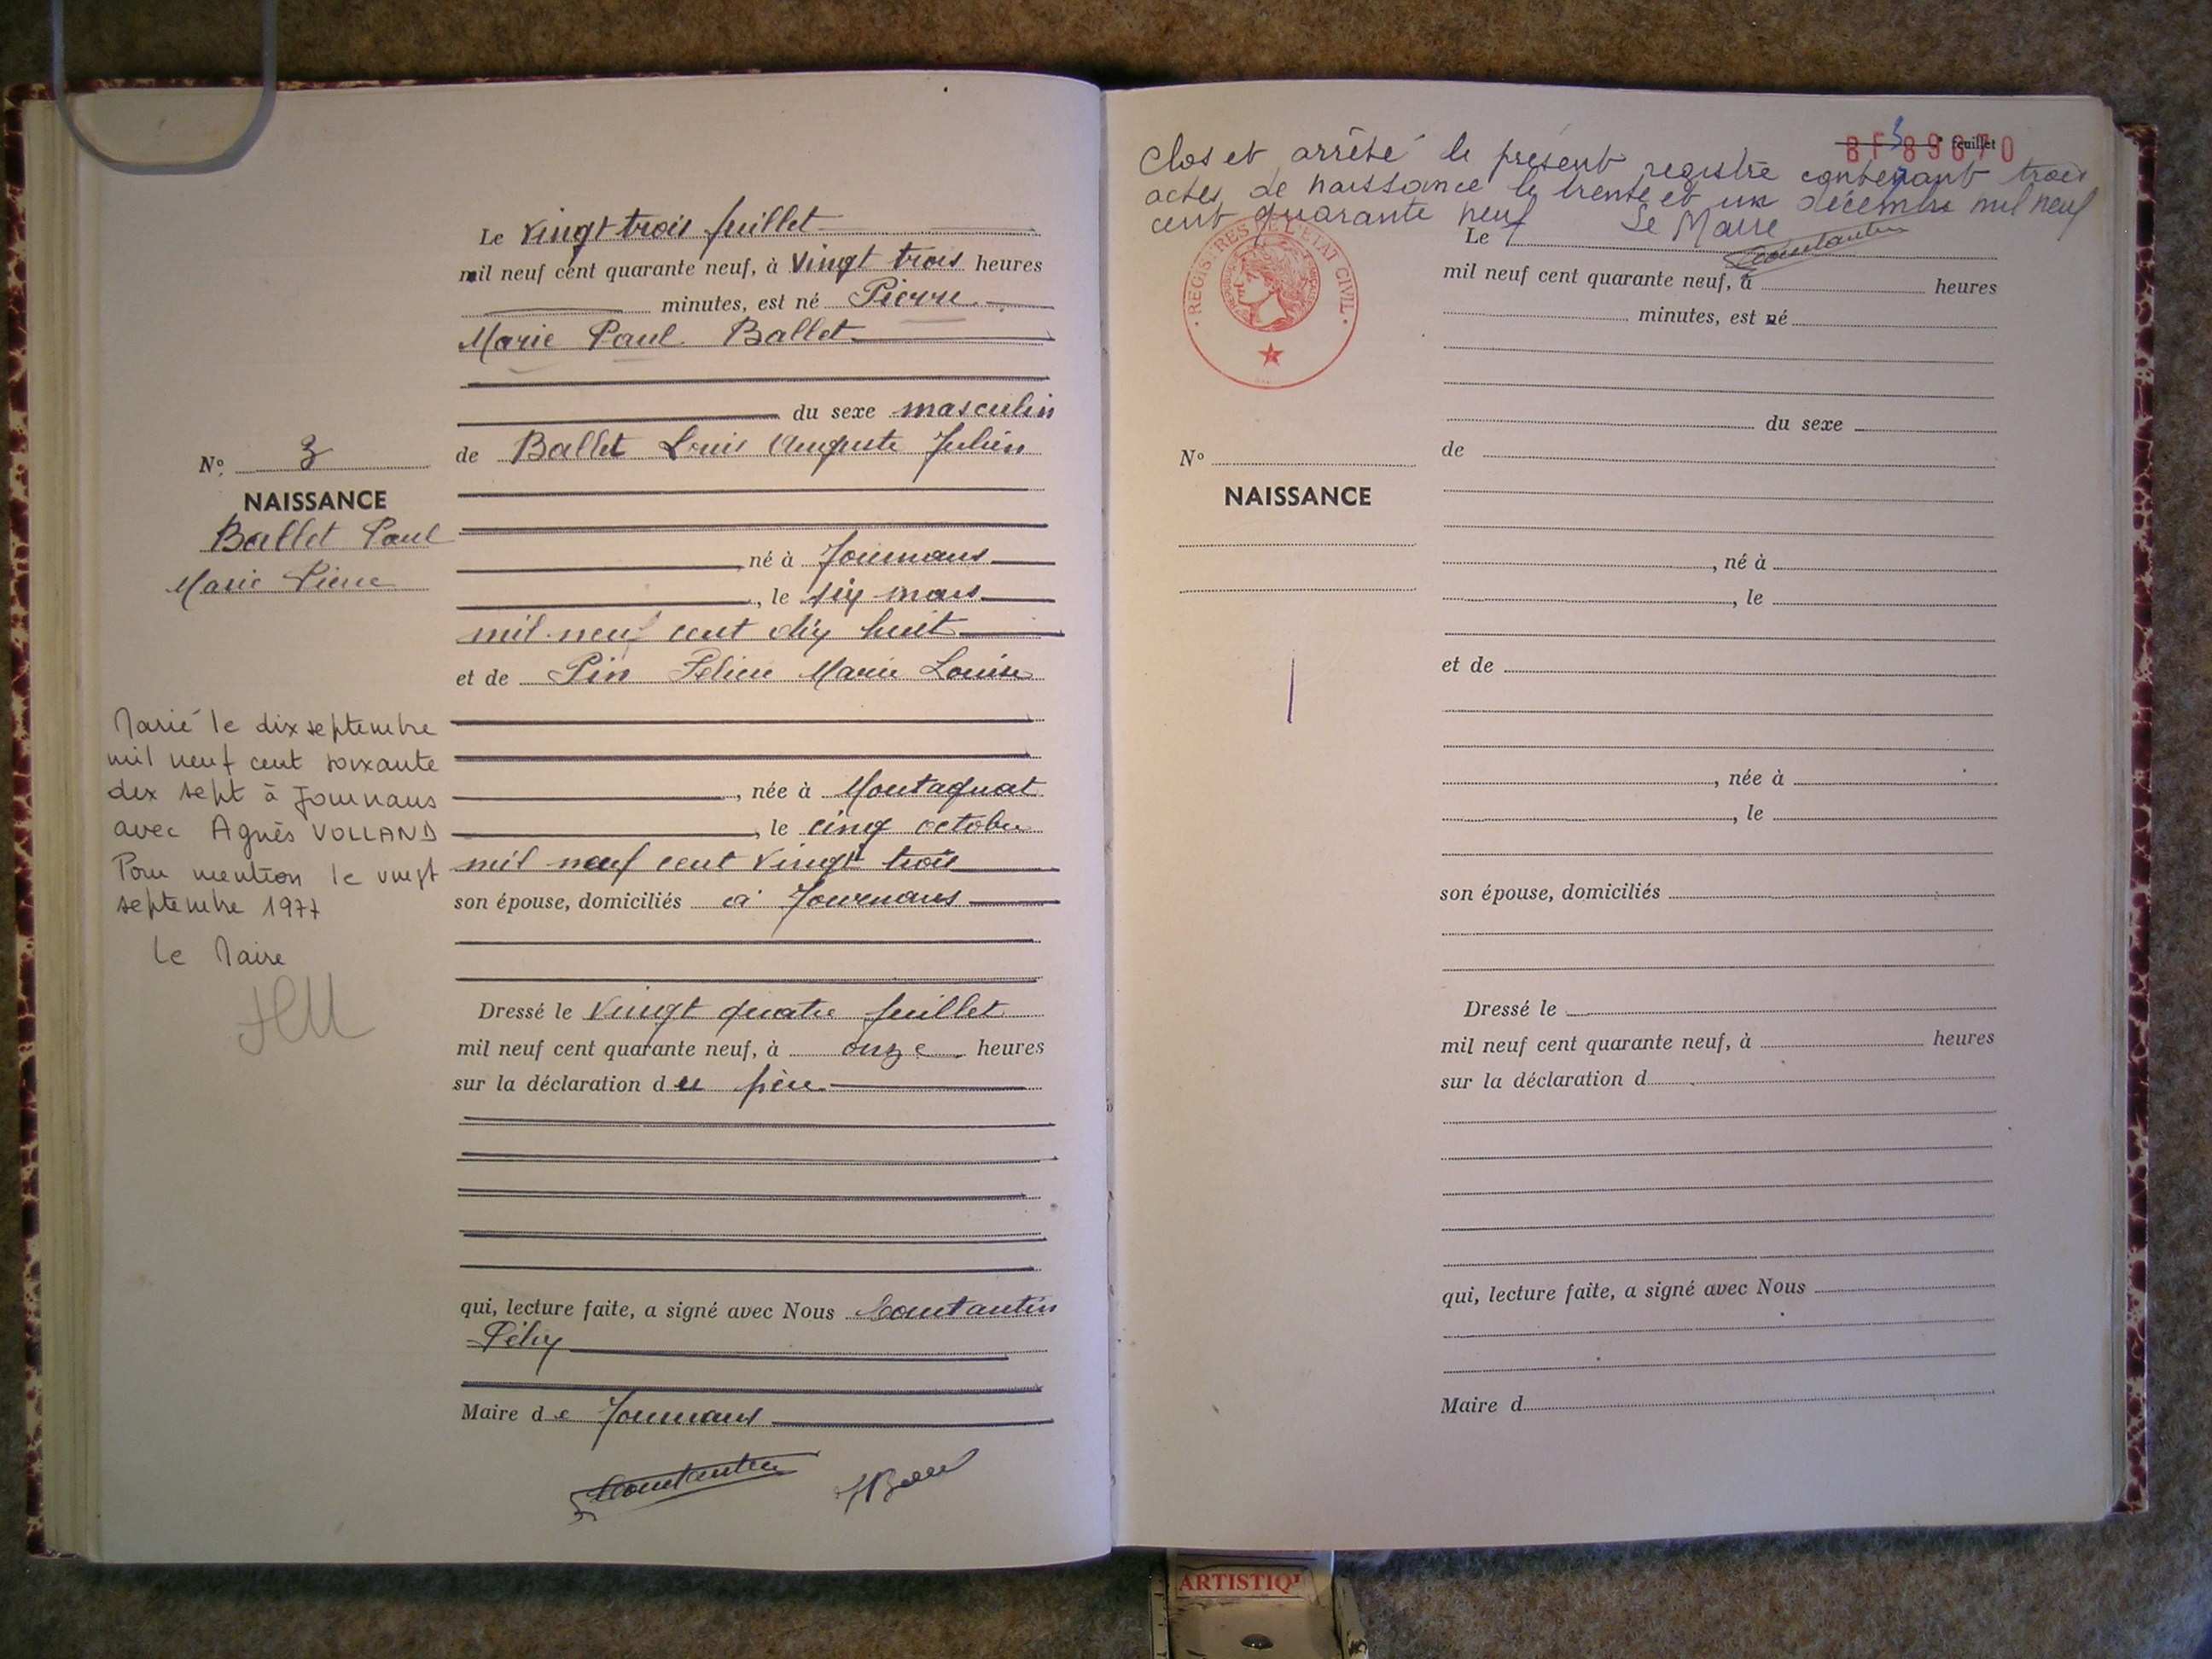 Le vingt trois juillet
mil neuf cent quarante neuf, à vingt trois heures
minutes, est né Pierre
Marie Paul Ballet
du sexe masculin
de Ballet Louis Auguste Julien
né à Journans
, le six mars
mil neuf cent dix huit
et de Pin Félicie Marie Louise
, née à Montagnat
, le cinq octobre
mil neuf cent vingt trois
son épouse, domiciliés à Journans
Dressé le vingt quatre juillet
mil neuf cent quarante neuf, à onze heures
sur la déclaration du père
qui, lecture faite, a signé avec Nous Constantin
Félix
Maire de Journans
Constantin
N° 3
NAISSANCE
Ballet Paul
Marie Pierre
Marié le dix septembre
mil neuf cent soixante
dix sept à Journans
avec Agnès VOLLAND
Pour mention le vingt
septembre 1977
Le Maire
3e feuillet
BF89870
Clos et arrêté le présent registre contenant trois
actes de naissance le trente et un décembre mil neuf
cent quarante neuf Le Maire
Constantin
REGISTRES DE L'ÉTAT CIVIL
Le
mil neuf cent quarante neuf, à heures
minutes, est né
du sexe
N°
NAISSANCE
de
, né à
, le
et de
, née à
, le
son épouse, domiciliés
Dressé le
mil neuf cent quarante neuf, à heures
sur la déclaration d
qui, lecture faite, a signé avec Nous
Maire d
ARTISTIQ